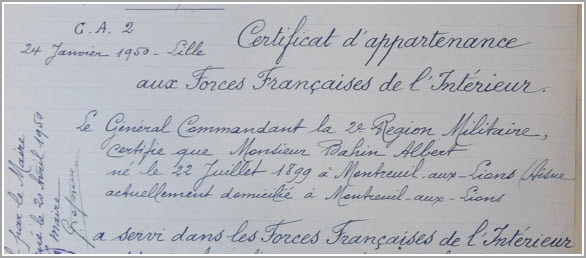 C. A. 2
24 Janvier 1950 - Lille
Certificat d'appartenance
aux Forces Françaises de l'Intérieur.
Le Général Commandant la 2e Région Militaire,
certifie que Monsieur Bahin Albert
né le 22 Juillet 1899 à Montreuil-aux-Lions (Aisne
actuellement domicilié à Montreuil-aux-Lions
a servi dans les Forces Françaises de l'Intérieur
par le Maire
le 20 Avril 1950
maire